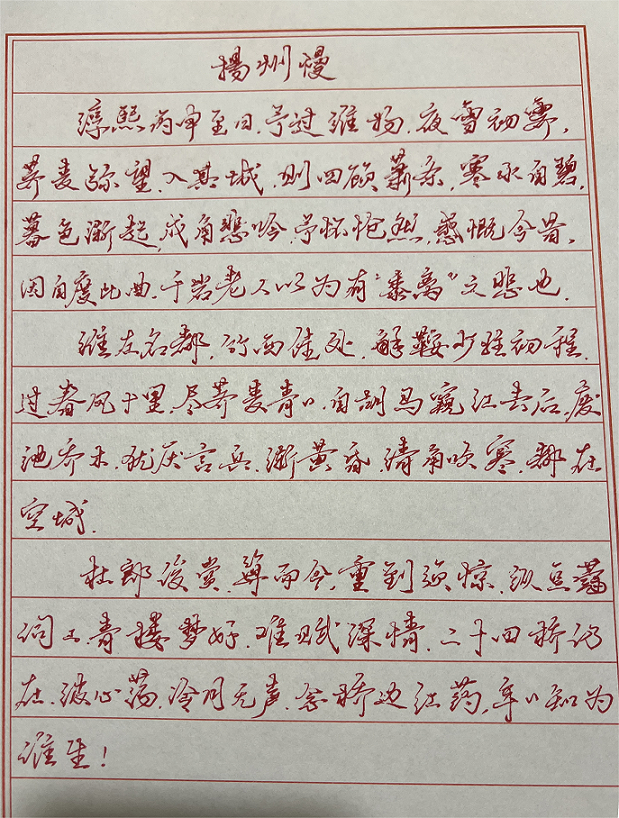 揚州慢
淳熙丙申至日,予过维扬,夜雪初霁,
荠麦弥望,入其城,则四顾萧条,寒水自碧,
暮色渐起,戍角悲吟,予怀怆然,感慨今昔,
因自度此曲,千岩老人以为有“黍离”之悲也.
淮左名都,竹西佳处,解鞍少驻初程.
过春风十里,尽荠麦青々.自胡马窥江去后,废
池乔木,犹厌言兵.渐黄昏,清角吹寒,都在
空城.
杜郎俊赏,算而今,重到须惊.纵豆蔻
词工,青楼梦好,难赋深情.二十四桥仍
在,波心荡,冷月无声.念桥边红药,年々知为
谁生!